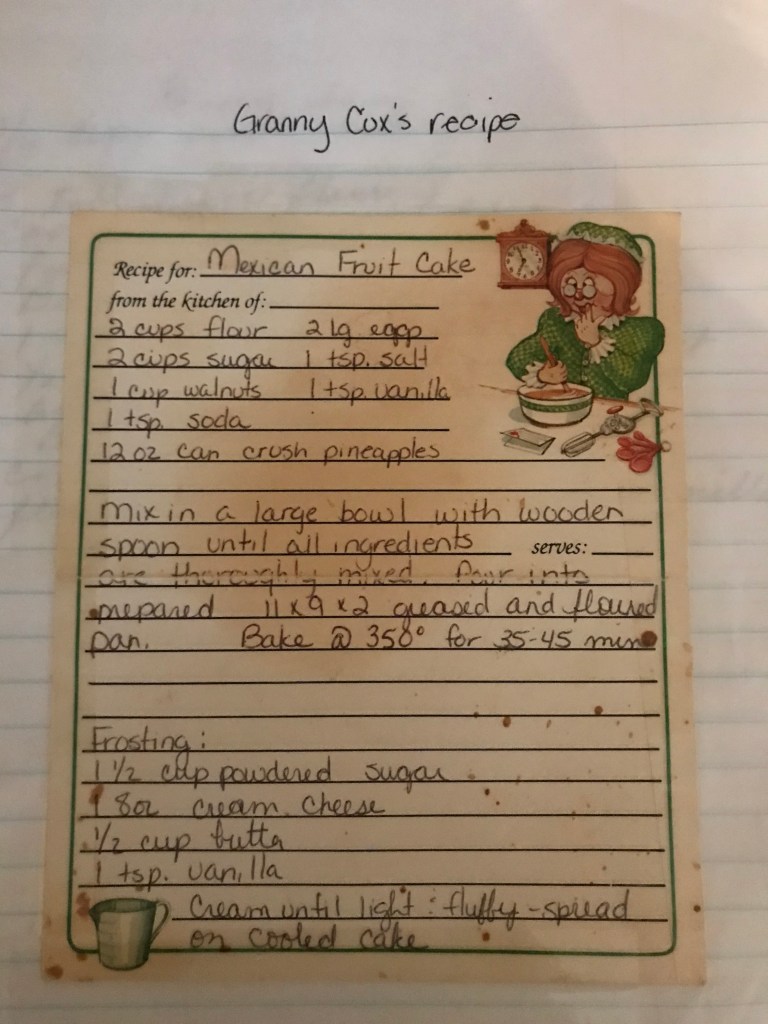 Granny Cox's recipe
Recipe for: Mexican Fruit Cake
from the kitchen of:
2 cups flour 2 lg eggs
2 cups sugar 1 tsp. salt
1 cup walnuts 1 tsp. vanilla
1 tsp. soda
12 oz can crush pineapples
Mix in a large bowl with wooden
spoon until all ingredients serves:
are thoroughly mixed. Pour into
prepared 11 x 9 x 2 greased and floured
pan. Bake @ 350° for 35-45 mins
Frosting:
1 1/2 cup powdered sugar
1 8oz cream cheese
1/2 cup butter
1 tsp. vanilla
Cream until light : fluffy - spread
on cooled cake